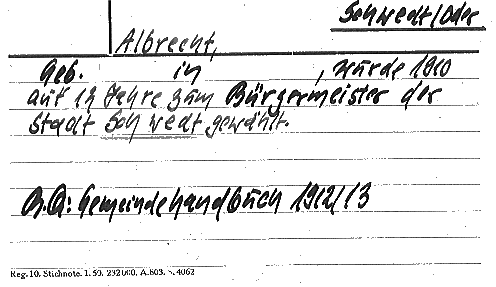 Schwedt/Oder
Albrecht,
Geb. in , wurde 1910
auf 12 Jahre zum Bürgermeister der
Stadt Schwedt gewählt.
A.Q.: Gemeindehandbuch 1912/13
Reg. 10. Stichnote. 1. 50. 232000. A.803. 4062